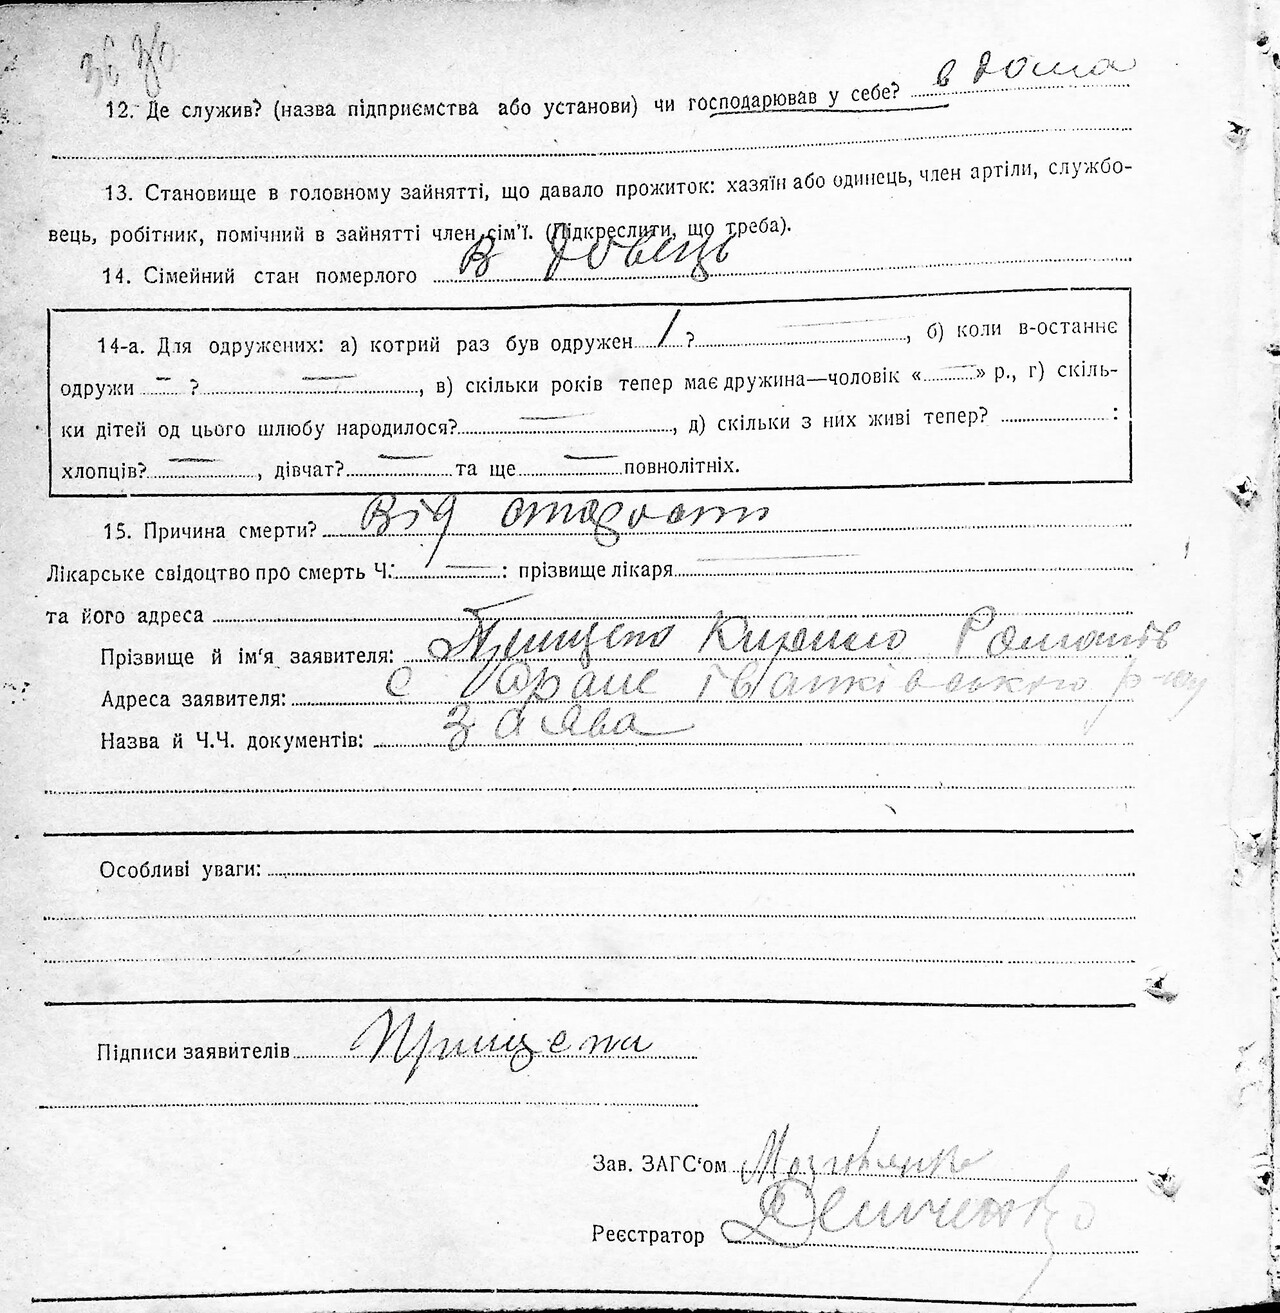 36 36
12. Де служив? (назва підприємства або установи) чи господарював у себе? в дома
13. Становище в головному зайнятті, що давало прожиток: хазяїн або одинець, член артіли, службо-
вець, робітник, помічний в зайнятті член сім'ї. (Підкреслити, що треба).
14. Сімейний стан померлого вдовець
14-а. Для одружених: а) котрий раз був одружен / ? , б) коли в-останнє
одружи – ? — , в) скільки років тепер має дружина—чоловік «—» р., г) скіль-
ки дітей од цього шлюбу народилося? — , д) скільки з них живі тепер? :
хлопців? — , дівчат? — та ще — повнолітніх.
15. Причина смерти? Від старости
Лікарське свідоцтво про смерть Ч. — : прізвище лікаря —
та його адреса
Прізвище й ім'я заявителя: Прищепа Кирило Романів
Адреса заявителя: с р-ну
Назва й Ч.Ч. документів: заява
Особливі уваги:
Підписи заявителів Прищепа
Зав. ЗАГС'ом
Реєстратор Демченко